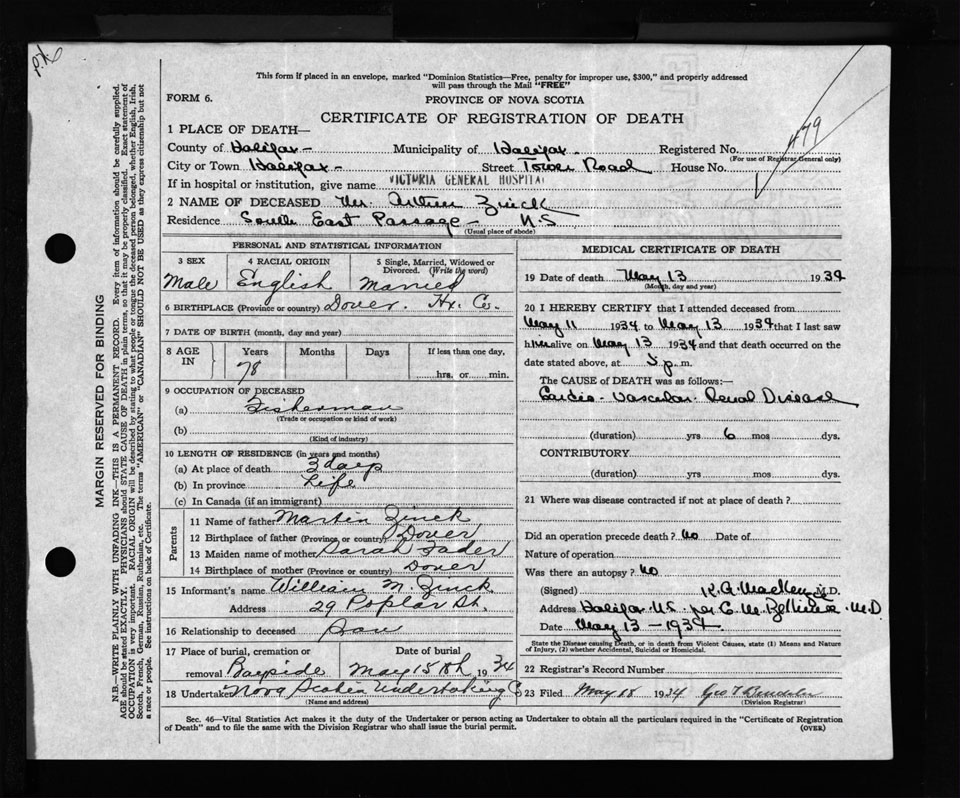 This form if placed in an envelope, marked "Dominion Statistics—Free, penalty for improper use, $300," and properly addressed
will pass through the Mail "FREE"
FORM 6.
PROVINCE OF NOVA SCOTIA
CERTIFICATE OF REGISTRATION OF DEATH
479
1 PLACE OF DEATH—
County of Halifax - Municipality of Halifax - Registered No.
(For use of Registrar General only)
City or Town Halifax - Street Tower Road House No.
If in hospital or institution, give name VICTORIA GENERAL HOSPITAL
2 NAME OF DECEASED Mr. Arthur Zinck
Residence South East Passage - N.S
(Usual place of abode)
PERSONAL AND STATISTICAL INFORMATION
3 SEX 4 RACIAL ORIGIN 5 Single, Married, Widowed or Divorced. (Write the word)
Male English Married
6 BIRTHPLACE (Province or country) Dover. Hx. Co.
7 DATE OF BIRTH (month, day and year)
8 AGE IN Years Months Days If less than one day,
78 hrs. or min.
9 OCCUPATION OF DECEASED
(a) Fisherman
(Trade or occupation or kind of work)
(b)
(Kind of industry)
10 LENGTH OF RESIDENCE (in years and months)
(a) At place of death 3 days
(b) In province Life
(c) In Canada (if an immigrant)
Parents
11 Name of father Martin Zinck
12 Birthplace of father (Province or country) Dover
13 Maiden name of mother Sarah Fader
14 Birthplace of mother (Province or country) Dover
15 Informant's name William M. Zinck
Address 29 Poplar St.
16 Relationship to deceased Son
17 Place of burial, cremation or removal Date of burial
Bayside May 15th 1934
18 Undertaker Nova Scotia Undertaking Co
(Name and address)
MEDICAL CERTIFICATE OF DEATH
19 Date of death May 13 1934
(Month, day and year)
20 I HEREBY CERTIFY that I attended deceased from
May 11 1934 to May 13 1934 that I last saw
him alive on May 13 1934 and that death occurred on the
date stated above, at 5 p. m.
The CAUSE OF DEATH was as follows:—
Cardio-Vascular-Renal Disease
(duration) yrs 6 mos dys.
CONTRIBUTORY
(duration) yrs mos dys.
21 Where was disease contracted if not at place of death?
Did an operation precede death? No Date of
Nature of operation
Was there an autopsy? No
(Signed) K.A. MacKenzie M.D.
Address Halifax N.S. per C. M. M.D
Date May 13 — 1934.
State the Disease causing Death, or in death from Violent Causes, state (1) Means and Nature of Injury, (2) whether Accidental, Suicidal or Homicidal.
22 Registrar's Record Number
23 Filed May 18 1934 Geo T
(Division Registrar)
Sec. 46—Vital Statistics Act makes it the duty of the Undertaker or person acting as Undertaker to obtain all the particulars required in the "Certificate of Registration
of Death" and to file the same with the Division Registrar who shall issue the burial permit.
(OVER)
MARGIN RESERVED FOR BINDING
N.B.—WRITE PLAINLY WITH UNFADING INK—THIS IS A PERMANENT RECORD. Every item of information should be carefully supplied.
AGE should be stated EXACTLY. PHYSICIANS should STATE CAUSE OF DEATH in plain terms, so that it may be properly classified. Exact statement of
OCCUPATION is very important. RACIAL ORIGIN will be described by stating to what people or tongue the deceased person belonged, whether English, Irish,
Scotch, French, German, Russian, Ruthenian, etc. The terms "AMERICAN" or "CANADIAN" SHOULD NOT BE USED as they express citizenship but not
a race or people. See instructions on back of Certificate.